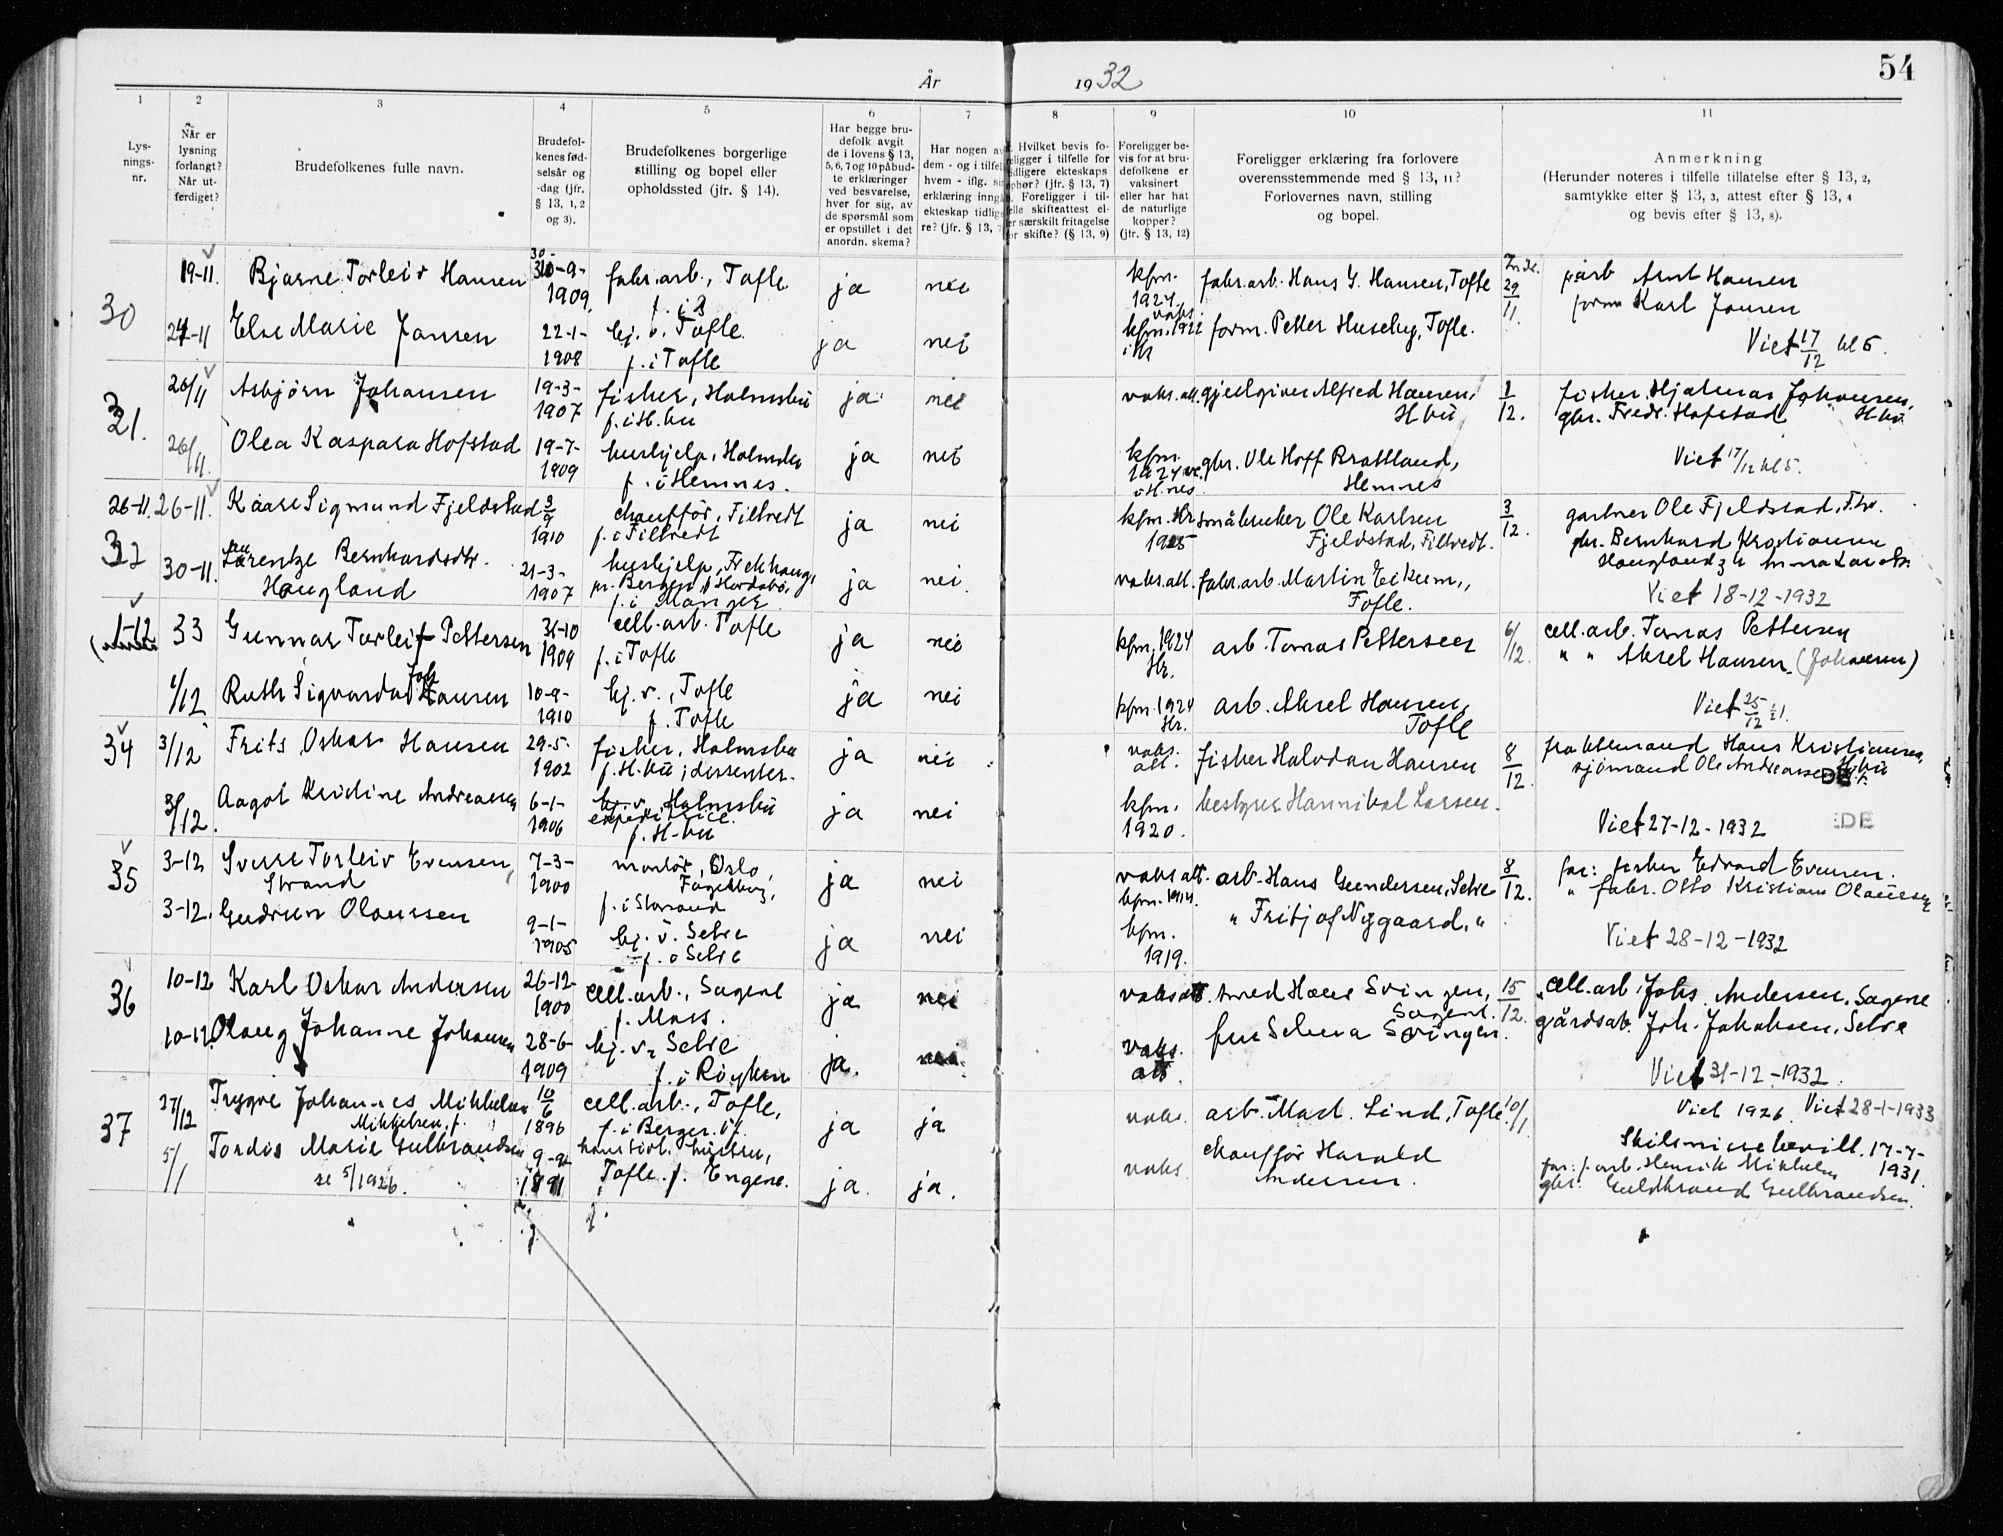 54
År 1932
1 2 3 4 5 6 7 8 9 10 11
Lys-
nings-
nr.
Når er
lysning
forlangt?
Når ut-
ferdiget?
Brudefolkenes fulle navn.
Brudefol-
kenes fød-
selsår og
-dag (jfr.
§ 13, 1, 2
og 3).
Brudefolkenes borgerlige
stilling og bopel eller
opholdssted (jfr. § 14).
Har begge bru-
defolk avgit
de i lovens § 13,
5, 6, 7 og 10 påbud-
te erklæringer
ved besvarelse,
hver for sig, av
de spørsmål som
er opstillet i det
anordn. skema?
Har nogen av
dem - og i tilfel
hvem - iflg. sin
erklæring inngå
ekteskap tidlige
re? (jfr. § 13, 7
Hvilket bevis fo-
religger i tilfelle for
idligere ekteskaps
phør? (jfr. § 13, 7)
Foreligger i til-
elle skifteattest el-
er særskilt fritagelse
or skifte? (§ 13, 9)
Foreligger be-
vis for at bru-
defolkene er
vaksinert
eller har hat
de naturlige
kopper?
(jfr. § 13, 12)
Foreligger erklæring fra forlovere
overensstemmende med § 13, 11?
Forlovernes navn, stilling
og bopel.
Anmerkning
(Herunder noteres i tilfelle tillatelse efter § 13, 2,
samtykke efter § 13, 3, attest efter § 13, 4
og bevis efter § 13, 8).
30
19-11. Bjarne Torleiv Hansen 30-9-1909 fabr.arb., Tofte ja nei kfm. 1924 fabr.arb. Hans G. Hansen, Tofte 29/11. arb Arnt Hansen
24-11 Else Marie Jansen 22-1-1908 hj. v. Tofte. f. i Tofte ja nei kfm. 1922 form. Petter Huseby, Tofte. form Karl Jansen
Viet 17/12 kl 5.
31.
26/11 Asbjørn Johansen 19-3-1907 fisker, Holmsbu f. i H.bu ja nei vaks.att. gjestgiver Alfred Hansen, H bu 1/12. fisker Hjalmar Johansen, H-bu
26/11. Olea Kaspara Hofstad 19-7-1909 hushjelp, Holmsbu f. i Hemnes. ja nei kfm. 1924 i H.nes. gbr. Ole Hoff Brattland, Hemnes gbr. Fredr. Hofstad
Viet 17/12 kl 5.
32
26-11. 26-11. Kaare Sigmund Fjeldstad 3/9 1910 chauffør, Filtvedt f. i Filtvedt ja nei kfm. Hr 1925 småbruker Ole Karlsen Fjeldstad, Filtvedt. 3/12. gartner Ole Fjeldstad, F.tv.
30-11. Laurentze Bernhardsdtr. Haugland 21-3-1907 hushjelp, Frekhaug, pr. Bergen, Hordabø, f. i Manger ja nei vaks.att. fabr.arb. Martin Eikum, Tofte. gbr. Bernhard Kristiansen Haugland
Viet 18-12-1932
33
1-12 Gunnar Torleif Pettersen 31-10 1909 cell.arb. Tofte f. i Tofte ja nei kfm. 1924 Hr. arb. Tomas Pettersen 6/12. cell.arb. Tomas Pettersen
1/12 Ruth Sigvarda Joh Hansen 10-9-1910 hj. v., Tofte f. Tofte ja nei kfm. 1924 Hr. arb. Aksel Hansen, Tofte " " Aksel Hansen (Johansen)
Viet 25/12
34
3/12 Frits Oskar Hansen 29-5-1902 fisker, Holmsbu f. H.bu, dissenter. ja nei vaks. att. fisker Halvdan Hansen 8/12. fraktemand Hans Kristiansen, H.bu
3/12. Aagot Kristine Andreassen 6-1-1906 hj. v. Holmsbu expeditrice. f. H-bu ja nei kfm. 1920. bestyrer Hannibal Larsen. sjømand Ole Andreassen
Viet 27-12-1932 DE
35
3-12 Sverre Torleiv Evensen, Strand 7-3-1900 montør, Oslo, Fagerborg, f. i Storsand ja nei vaks att. kfm. 1914. arb. Hans Gundersen, Sætre 8/12. far: fisker Edvard Evensen.
3-12. Gudrun Olaussen 9-1-1905 hj. v. Sætre f. i Sætre ja nei kfm. 1919. " Fritjof Nygaard, " " fabr. Otto Kristian Olaussen
Viet 28-12-1932
36
10-12 Karl Oskar Andersen 26-12-1900 cell.arb., Sagene f. Moss. ja nei vaks att. smed Hans Svingen, Sagene. 15/12. cell.arb. Johs. Andersen, Sagene
10-12. Olaug Johanne Johansen 28-6-1909 hj. v. Sætre f. i Røyken ja. nei vaks. att. fru Selma Svingen. gårdsarb. Joh. Jakobsen, Sætre
Viet 31-12-1932.
37
27/12 Trygve Johannes Mikkelsen 10/6 1896 cell.arb., Tofte, f. i Berger ja ja vaks. arb. Mart. Lind, Tofte. 10/1. Viet 1926. Viet 28-1-1933
5/1 Tordis Marie Gulbrandsen 9-9-1891 Tofte. f. Engene. ja. ja. vaks. chauffør Harald Andersen. Skilsmissebevill. 17-7-1931.
se 5/1926. far: f. arb. Henrik Mikkelsen
gbr. Guldbrand Gulbrandsen.